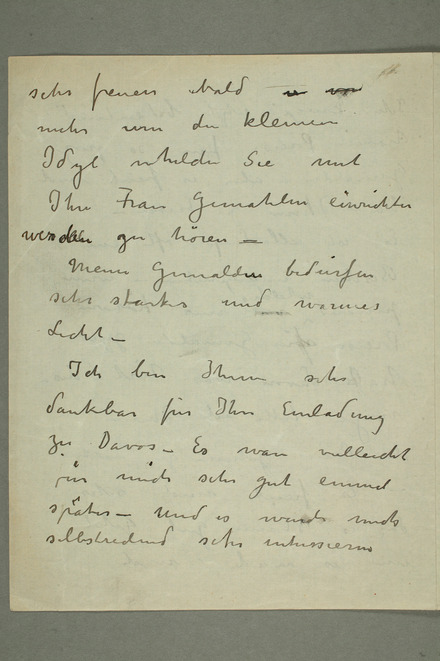 sehr freuen bald
mehr von der kleinen
Idyl welche Sie mit
Ihre Frau Gemahlin einrichten
werden zu hören —
Meine Gemälden bedürfen
sehr starkes und warmes
Licht —
Ich bin Ihnen sehr
dankbar für Ihre Einladung
zu Davos — Es war vielleicht
für mich sehr gut einmal
später — und es wurde mich
selbstredend sehr interessieren